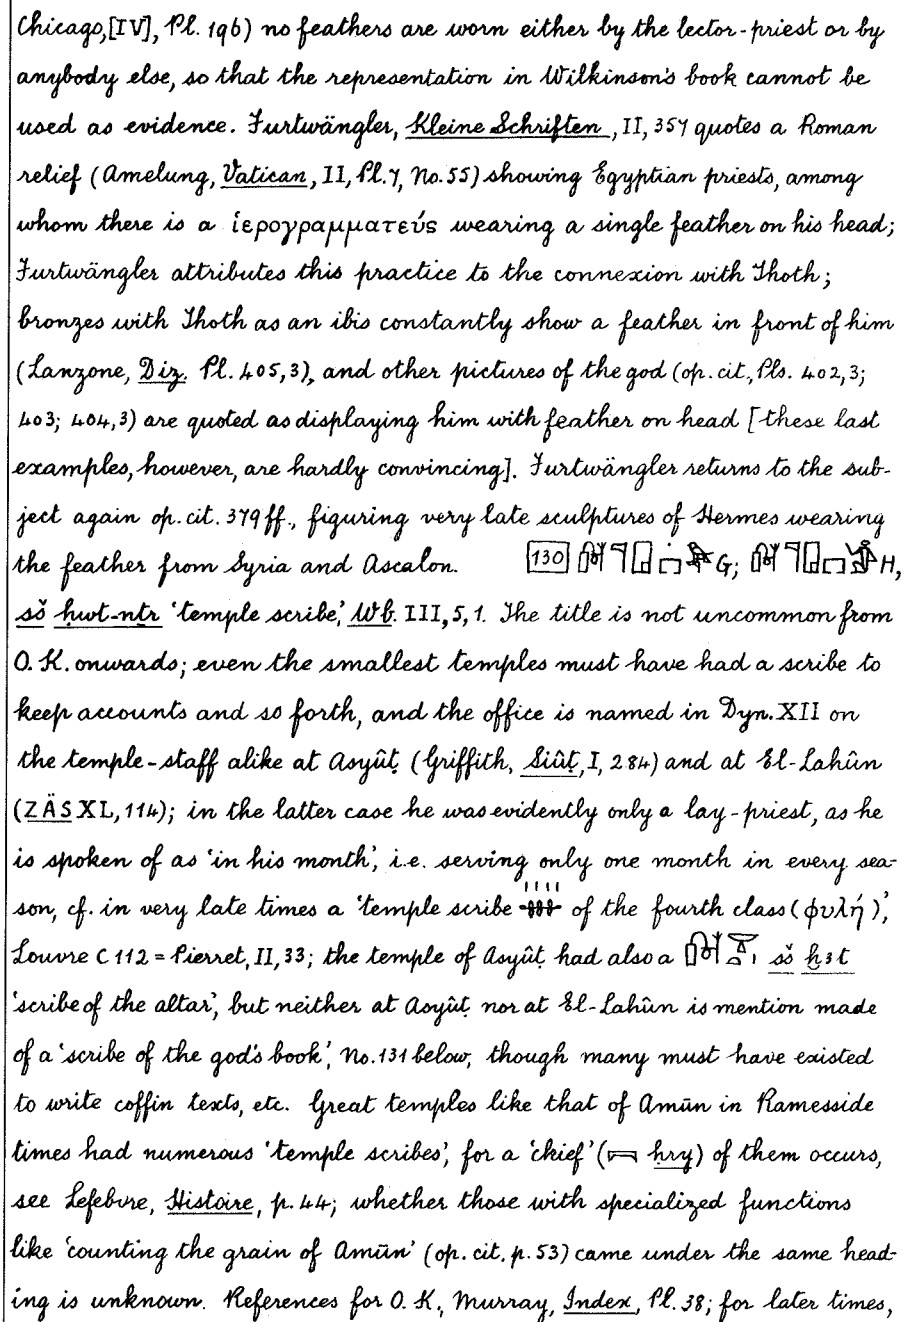 Chicago,[IV], Pl. 196) no feathers are worn either by the lector-priest or by
anybody else, so that the representation in Wilkinson's book cannot be
used as evidence. Furtwängler, Kleine Schriften, II, 357 quotes a Roman
relief (Amelung, Vatican, II, Pl. 7, No. 55) showing Egyptian priests, among
whom there is a ἱερογραμματεύς wearing a single feather on his head;
Furtwängler attributes this practice to the connexion with Thoth;
bronzes with Thoth as an ibis constantly show a feather in front of him
(Lanzone, Diz. Pl. 405,3), and other pictures of the god (op. cit., Pls. 402,3;
403; 404,3) are quoted as displaying him with feather on head [these last
examples, however, are hardly convincing]. Furtwängler returns to the sub-
ject again op. cit. 379 ff., figuring very late sculptures of Hermes wearing
the feather from Syria and Ascalon. 130 G; H,
sš ḥwt-nṯr 'temple scribe', Wb. III, 5, 1. The title is not uncommon from
O. K. onwards; even the smallest temples must have had a scribe to
keep accounts and so forth, and the office is named in Dyn. XII on
the temple-staff alike at Asyûṭ (Griffith, Siûṭ, I, 284) and at El-Lahûn
(ZÄS XL, 114); in the latter case he was evidently only a lay-priest, as he
is spoken of as 'in his month', i.e. serving only one month in every sea-
son, cf. in very late times a 'temple scribe of the fourth class (φυλή)',
Louvre C 112 = Pierret, II, 33; the temple of Asyûṭ had also a sš ḫꜣt
'scribe of the altar', but neither at Asyûṭ nor at El-Lahûn is mention made
of a 'scribe of the god's book', No. 131 below, though many must have existed
to write coffin texts, etc. Great temples like that of Amūn in Ramesside
times had numerous 'temple scribes', for a 'chief' (ḥry) of them occurs,
see Lefebvre, Histoire, p. 44; whether those with specialized functions
like 'counting the grain of Amūn' (op. cit. p. 53) came under the same head-
ing is unknown. References for O. K., Murray, Index, Pl. 38; for later times,